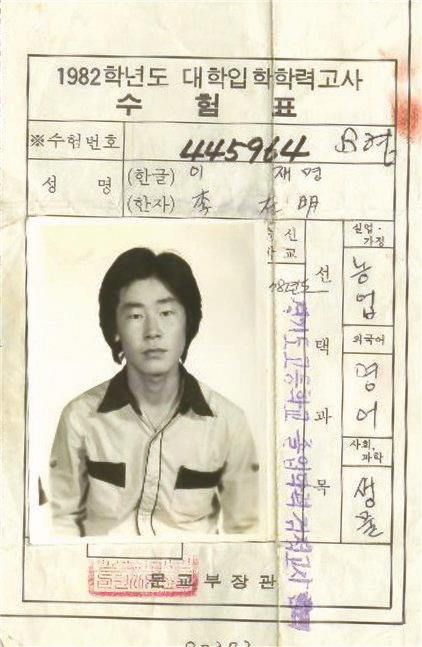 1982학년도 대학입학학력고사
수 험 표
※수험번호 445964
성 명 (한글) 이 재명
(한자) 李 在 明
선 택 과 목
실업·가정 농업
외국어 영어
사회,과학 생물
경기도 고등학교 졸업학력 검정고시
문교부장관